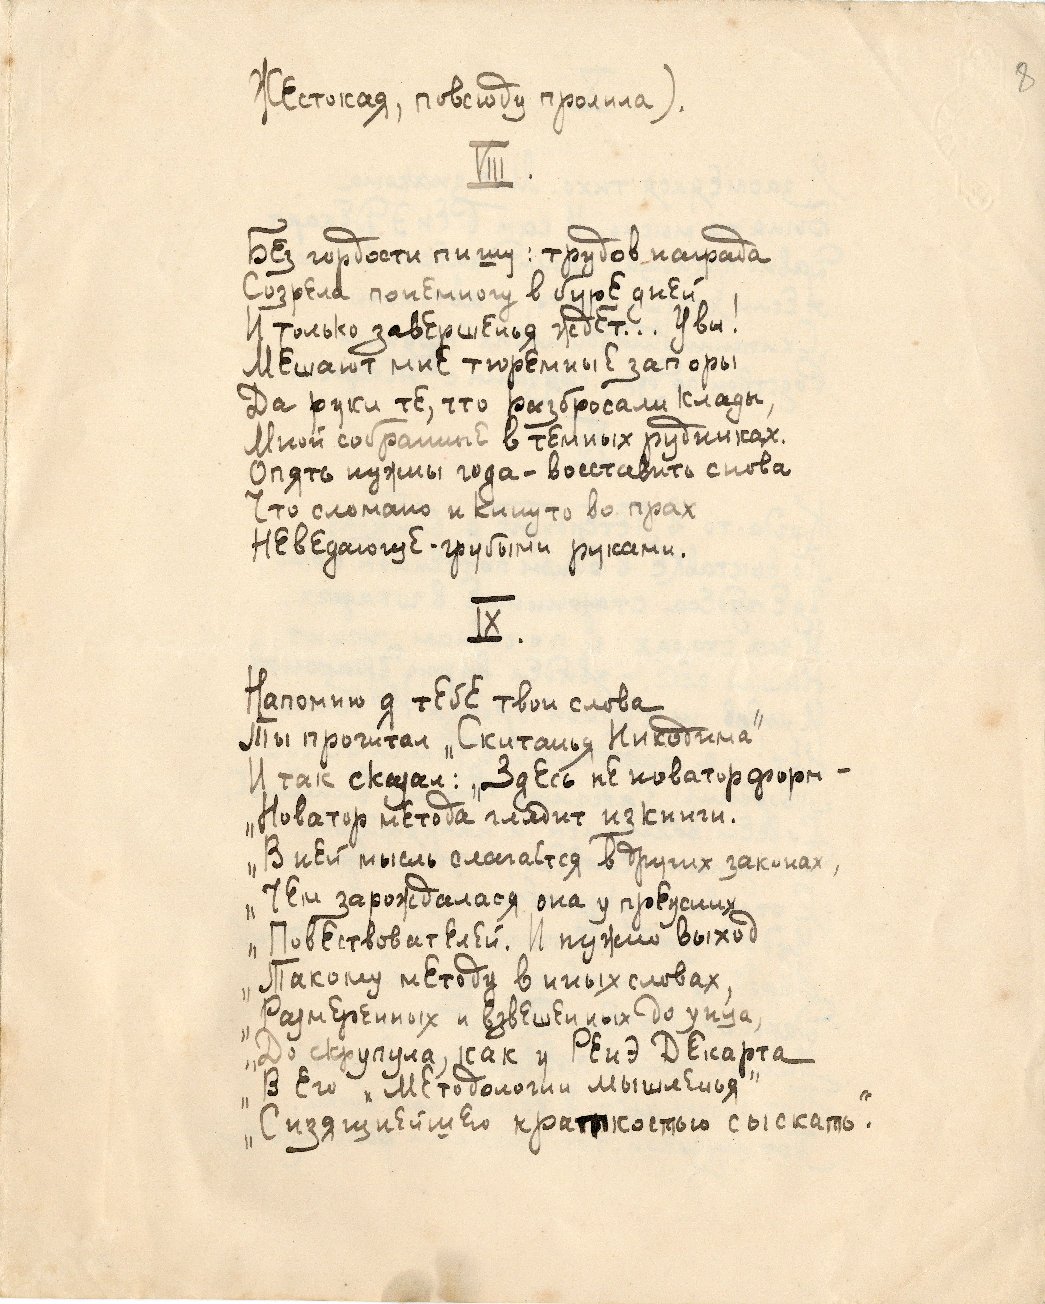 8
Жестокая, повсюду пролила).
VIII.
Без гордости пишу: трудов награда
Созрела понемногу в буре дней
И только завершенья ждёт... Увы!
Мешают мне тюремные запоры
Да руки те, что разбросали клады,
Мной собранные в тёмных рудниках.
Опять нужны года – восставить снова
Что сломано и кинуто во прах
Неведающе-грубыми руками.
IX.
Напомню я тебе твои слова
Ты прочитал „Скитанья Никодима"
И так сказал: „Здесь не новатор форм –
„Новатор метода глядит из книги.
„В ней мысль слагается в других законах,
„Чем зарождалася она у прежних
„Повествователей. И нужно выход
„Такому методу в иных словах,
„Размеренных и взвешенных до унца,
„До скрупула, как у Ренэ Декарта
„В его „Методологии мышленья"
„С изящнейшею краткостью сыскать".